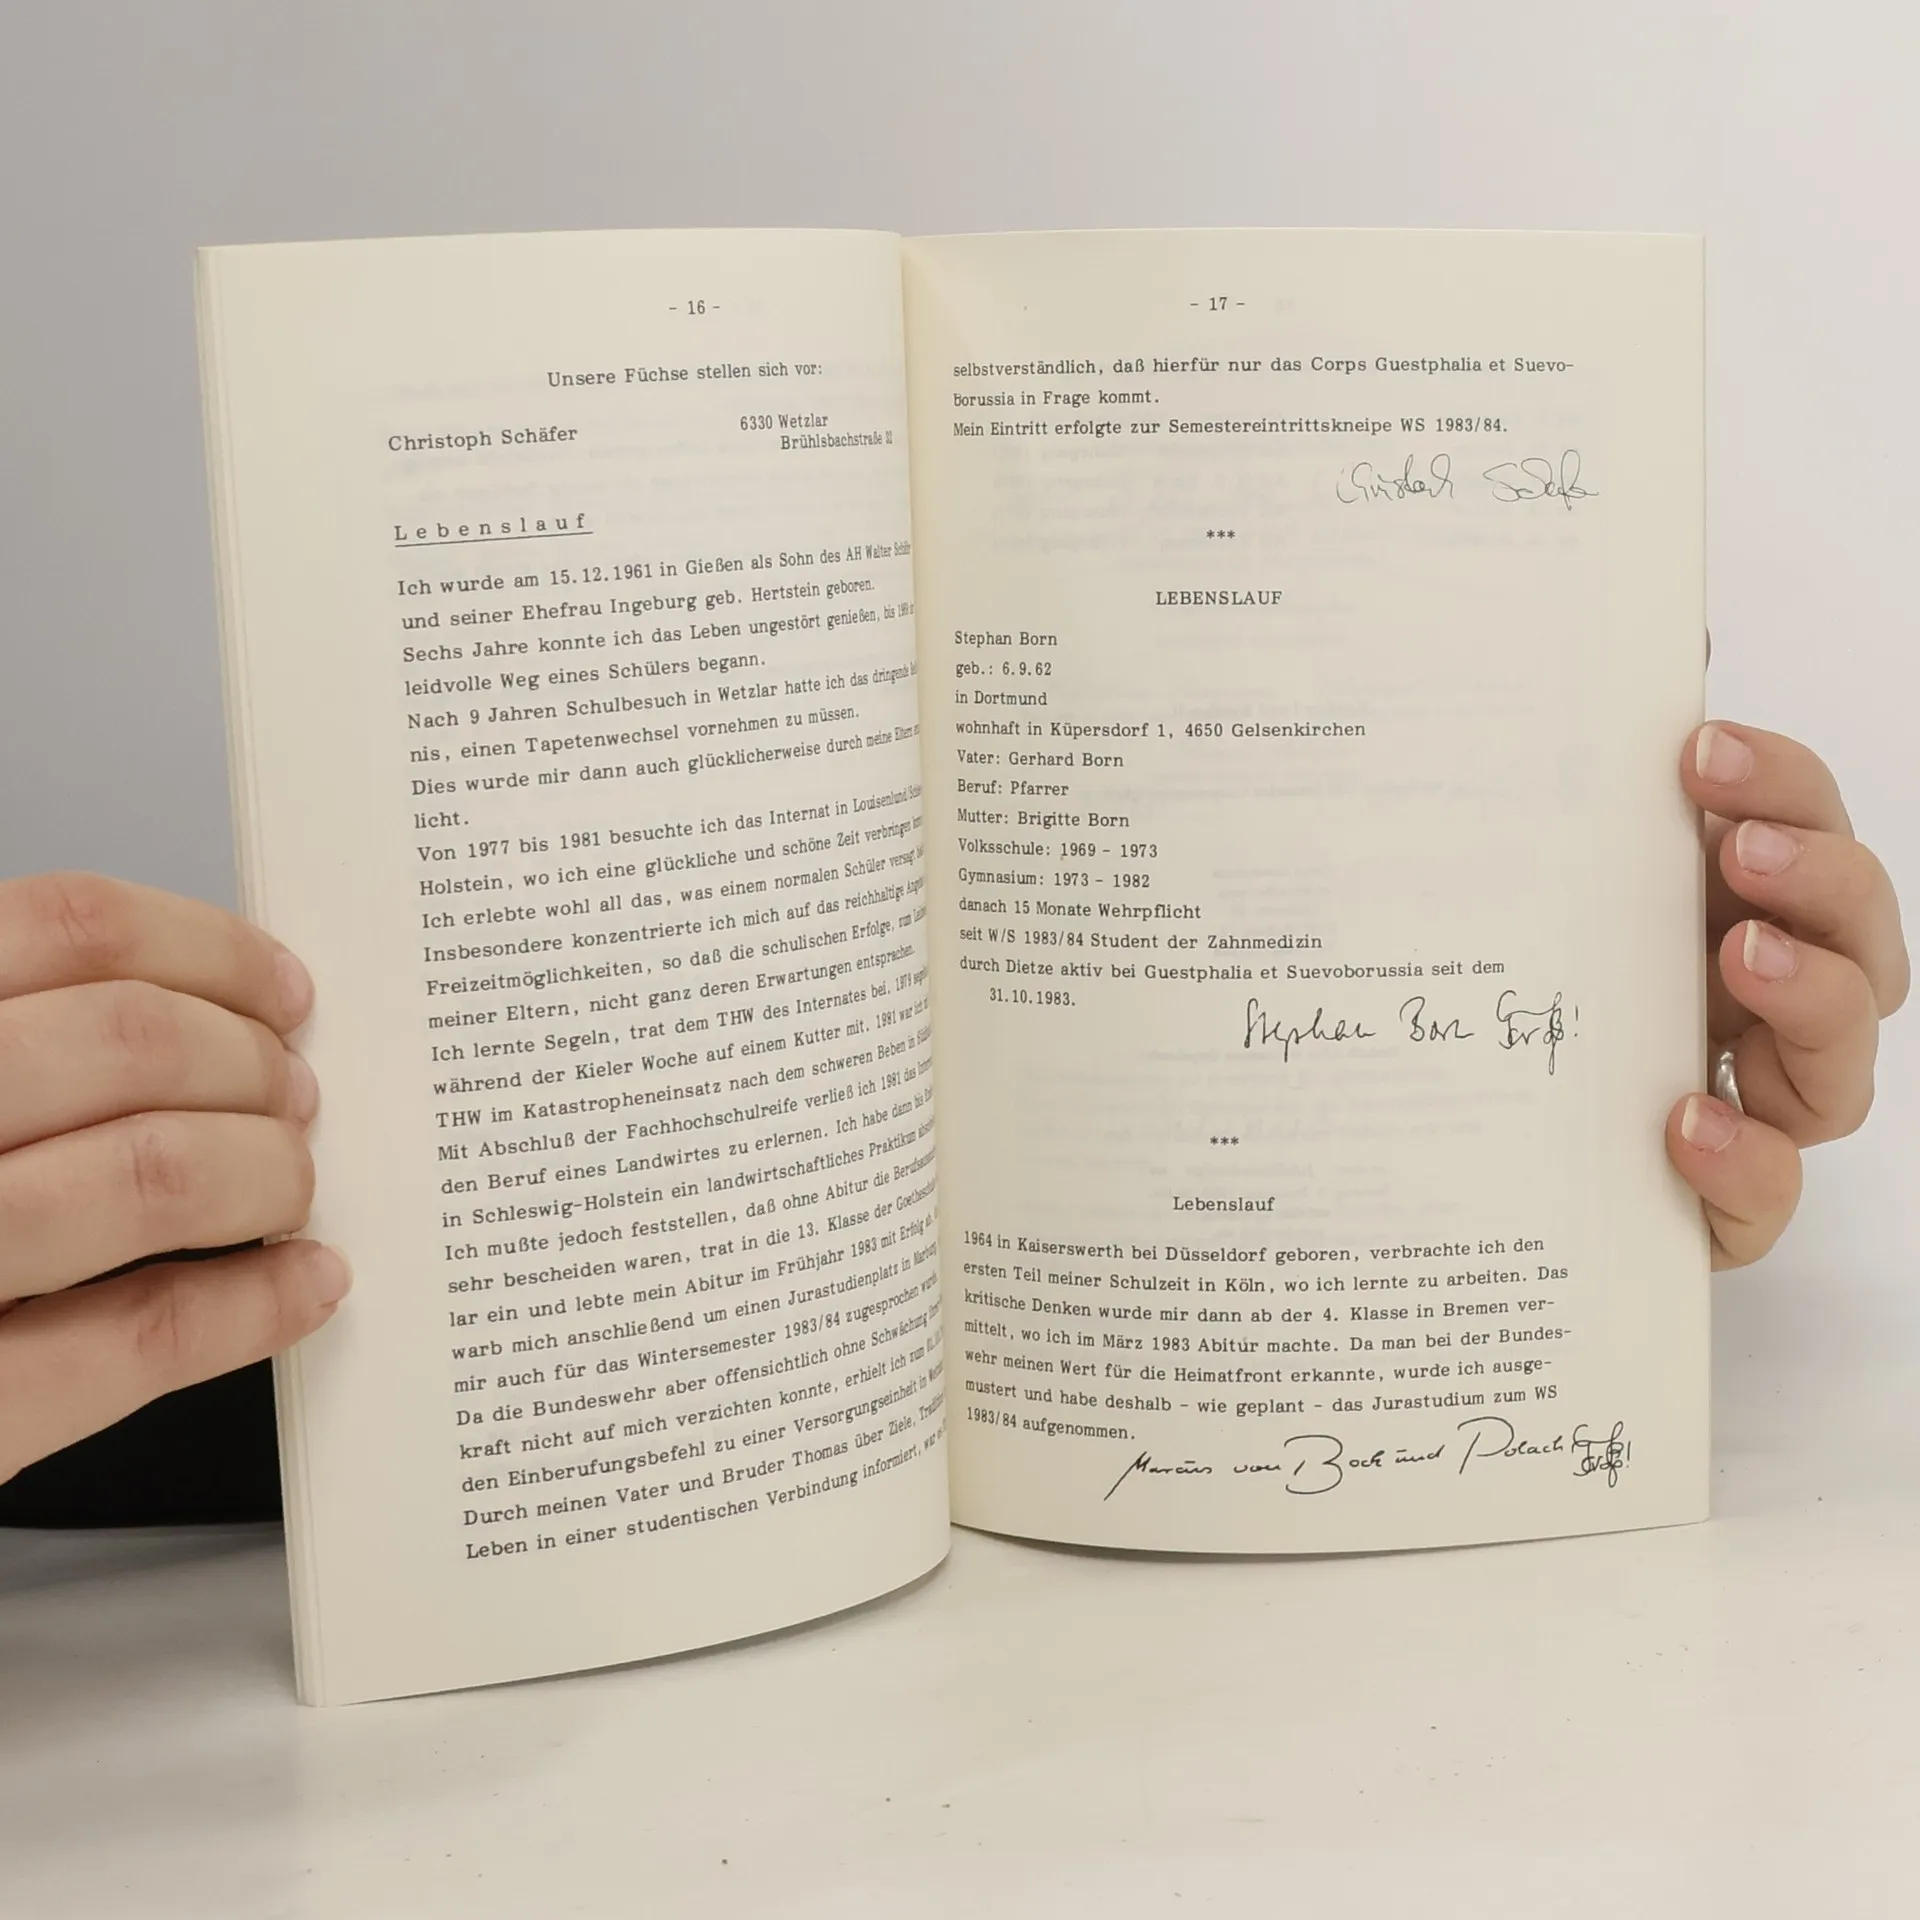 - 16 -
Unsere Füchse stellen sich vor:
Christoph Schäfer
6330 Wetzlar
Brühlsbachstraße
Lebenslauf
Ich wurde am 15.12.1961 in Gießen als Sohn des AH Walter Schäfer
und seiner Ehefrau Ingeburg geb. Hertstein geboren.
Sechs Jahre konnte ich das Leben ungestört genießen, bis
leidvolle Weg eines Schülers begann.
Nach 9 Jahren Schulbesuch in Wetzlar hatte ich das dringende
nis, einen Tapetenwechsel vornehmen zu müssen.
Dies wurde mir dann auch glücklicherweise durch meine Eltern
licht.
Von 1977 bis 1981 besuchte ich das Internat in Louisenlund
Holstein, wo ich eine glückliche und schöne Zeit verbringen
Ich erlebte wohl all das, was einem normalen Schüler versagt
Insbesondere konzentrierte ich mich auf das reichhaltige
Freizeitmöglichkeiten, so daß die schulischen Erfolge, zum
meiner Eltern, nicht ganz deren Erwartungen entsprachen.
Ich lernte Segeln, trat dem THW des Internates bei. 1979
während der Kieler Woche auf einem Kutter mit. 1981 war ich
THW im Katastropheneinsatz nach dem schweren Beben in
Mit Abschluß der Fachhochschulreife verließ ich 1981 das
den Beruf eines Landwirtes zu erlernen. Ich habe dann bis
in Schleswig-Holstein ein landwirtschaftliches Praktikum
Ich mußte jedoch feststellen, daß ohne Abitur die
sehr bescheiden waren, trat in die 13. Klasse der
lar ein und lebte mein Abitur im Frühjahr 1983 mit Erfolg ab.
warb mich anschließend um einen Jurastudienplatz in Marburg
mir auch für das Wintersemester 1983/84 zugesprochen wurde.
Da die Bundeswehr aber offensichtlich ohne Schwächung
kraft nicht auf mich verzichten konnte, erhielt ich zum
den Einberufungsbefehl zu einer Versorgungseinheit in
Durch meinen Vater und Bruder Thomas über Ziele,
Leben in einer studentischen Verbindung informiert, war
- 17 -
selbstverständlich, daß hierfür nur das Corps Guestphalia et Suevo-
borussia in Frage kommt.
Mein Eintritt erfolgte zur Semestereintrittskneipe WS 1983/84.
Christoph Schäfer
***
LEBENSLAUF
Stephan Born
geb.: 6.9.62
in Dortmund
wohnhaft in Küpersdorf 1, 4650 Gelsenkirchen
Vater: Gerhard Born
Beruf: Pfarrer
Mutter: Brigitte Born
Volksschule: 1969 - 1973
Gymnasium: 1973 - 1982
danach 15 Monate Wehrpflicht
seit W/S 1983/84 Student der Zahnmedizin
durch Dietze aktiv bei Guestphalia et Suevoborussia seit dem
31.10.1983.
Stephan Born
***
Lebenslauf
1964 in Kaiserswerth bei Düsseldorf geboren, verbrachte ich den
ersten Teil meiner Schulzeit in Köln, wo ich lernte zu arbeiten. Das
kritische Denken wurde mir dann ab der 4. Klasse in Bremen ver-
mittelt, wo ich im März 1983 Abitur machte. Da man bei der Bundes-
wehr meinen Wert für die Heimatfront erkannte, wurde ich ausge-
mustert und habe deshalb - wie geplant - das Jurastudium zum WS
1983/84 aufgenommen.
Marcus von Bock und Polach